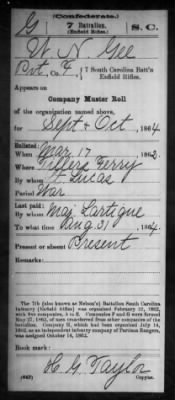 (Confederate.)
G 7 Battalion. S.C.
(Enfield Rifles.)
W N Gee
Pvt, Co. F, 7 South Carolina Batt'n
Enfield Rifles.
Appears on
Company Muster Roll
of the organization named above,
for Sept & Oct, 1864.
Enlisted:
When Mar 17, 1862.
Where Tillers Ferry
By whom Lucas
Period War
Last paid:
By whom Maj Lartigue
To what time Aug 31, 1864.
Present or absent Present
Remarks:
The 7th (also known as Nelson's) Battalion South Carolina
Infantry (Enfield Rifles) was organized February 21, 1862,
with five companies, A to E. Companies F and G were formed
May 1862, of men transferred from other companies of the
battalion. Company H, which had been organized July 14,
1862, as an independent company of Partisan Rangers,
was assigned October 16, 1862.
Book mark:
H. G. Taylor
(642) Copyist.